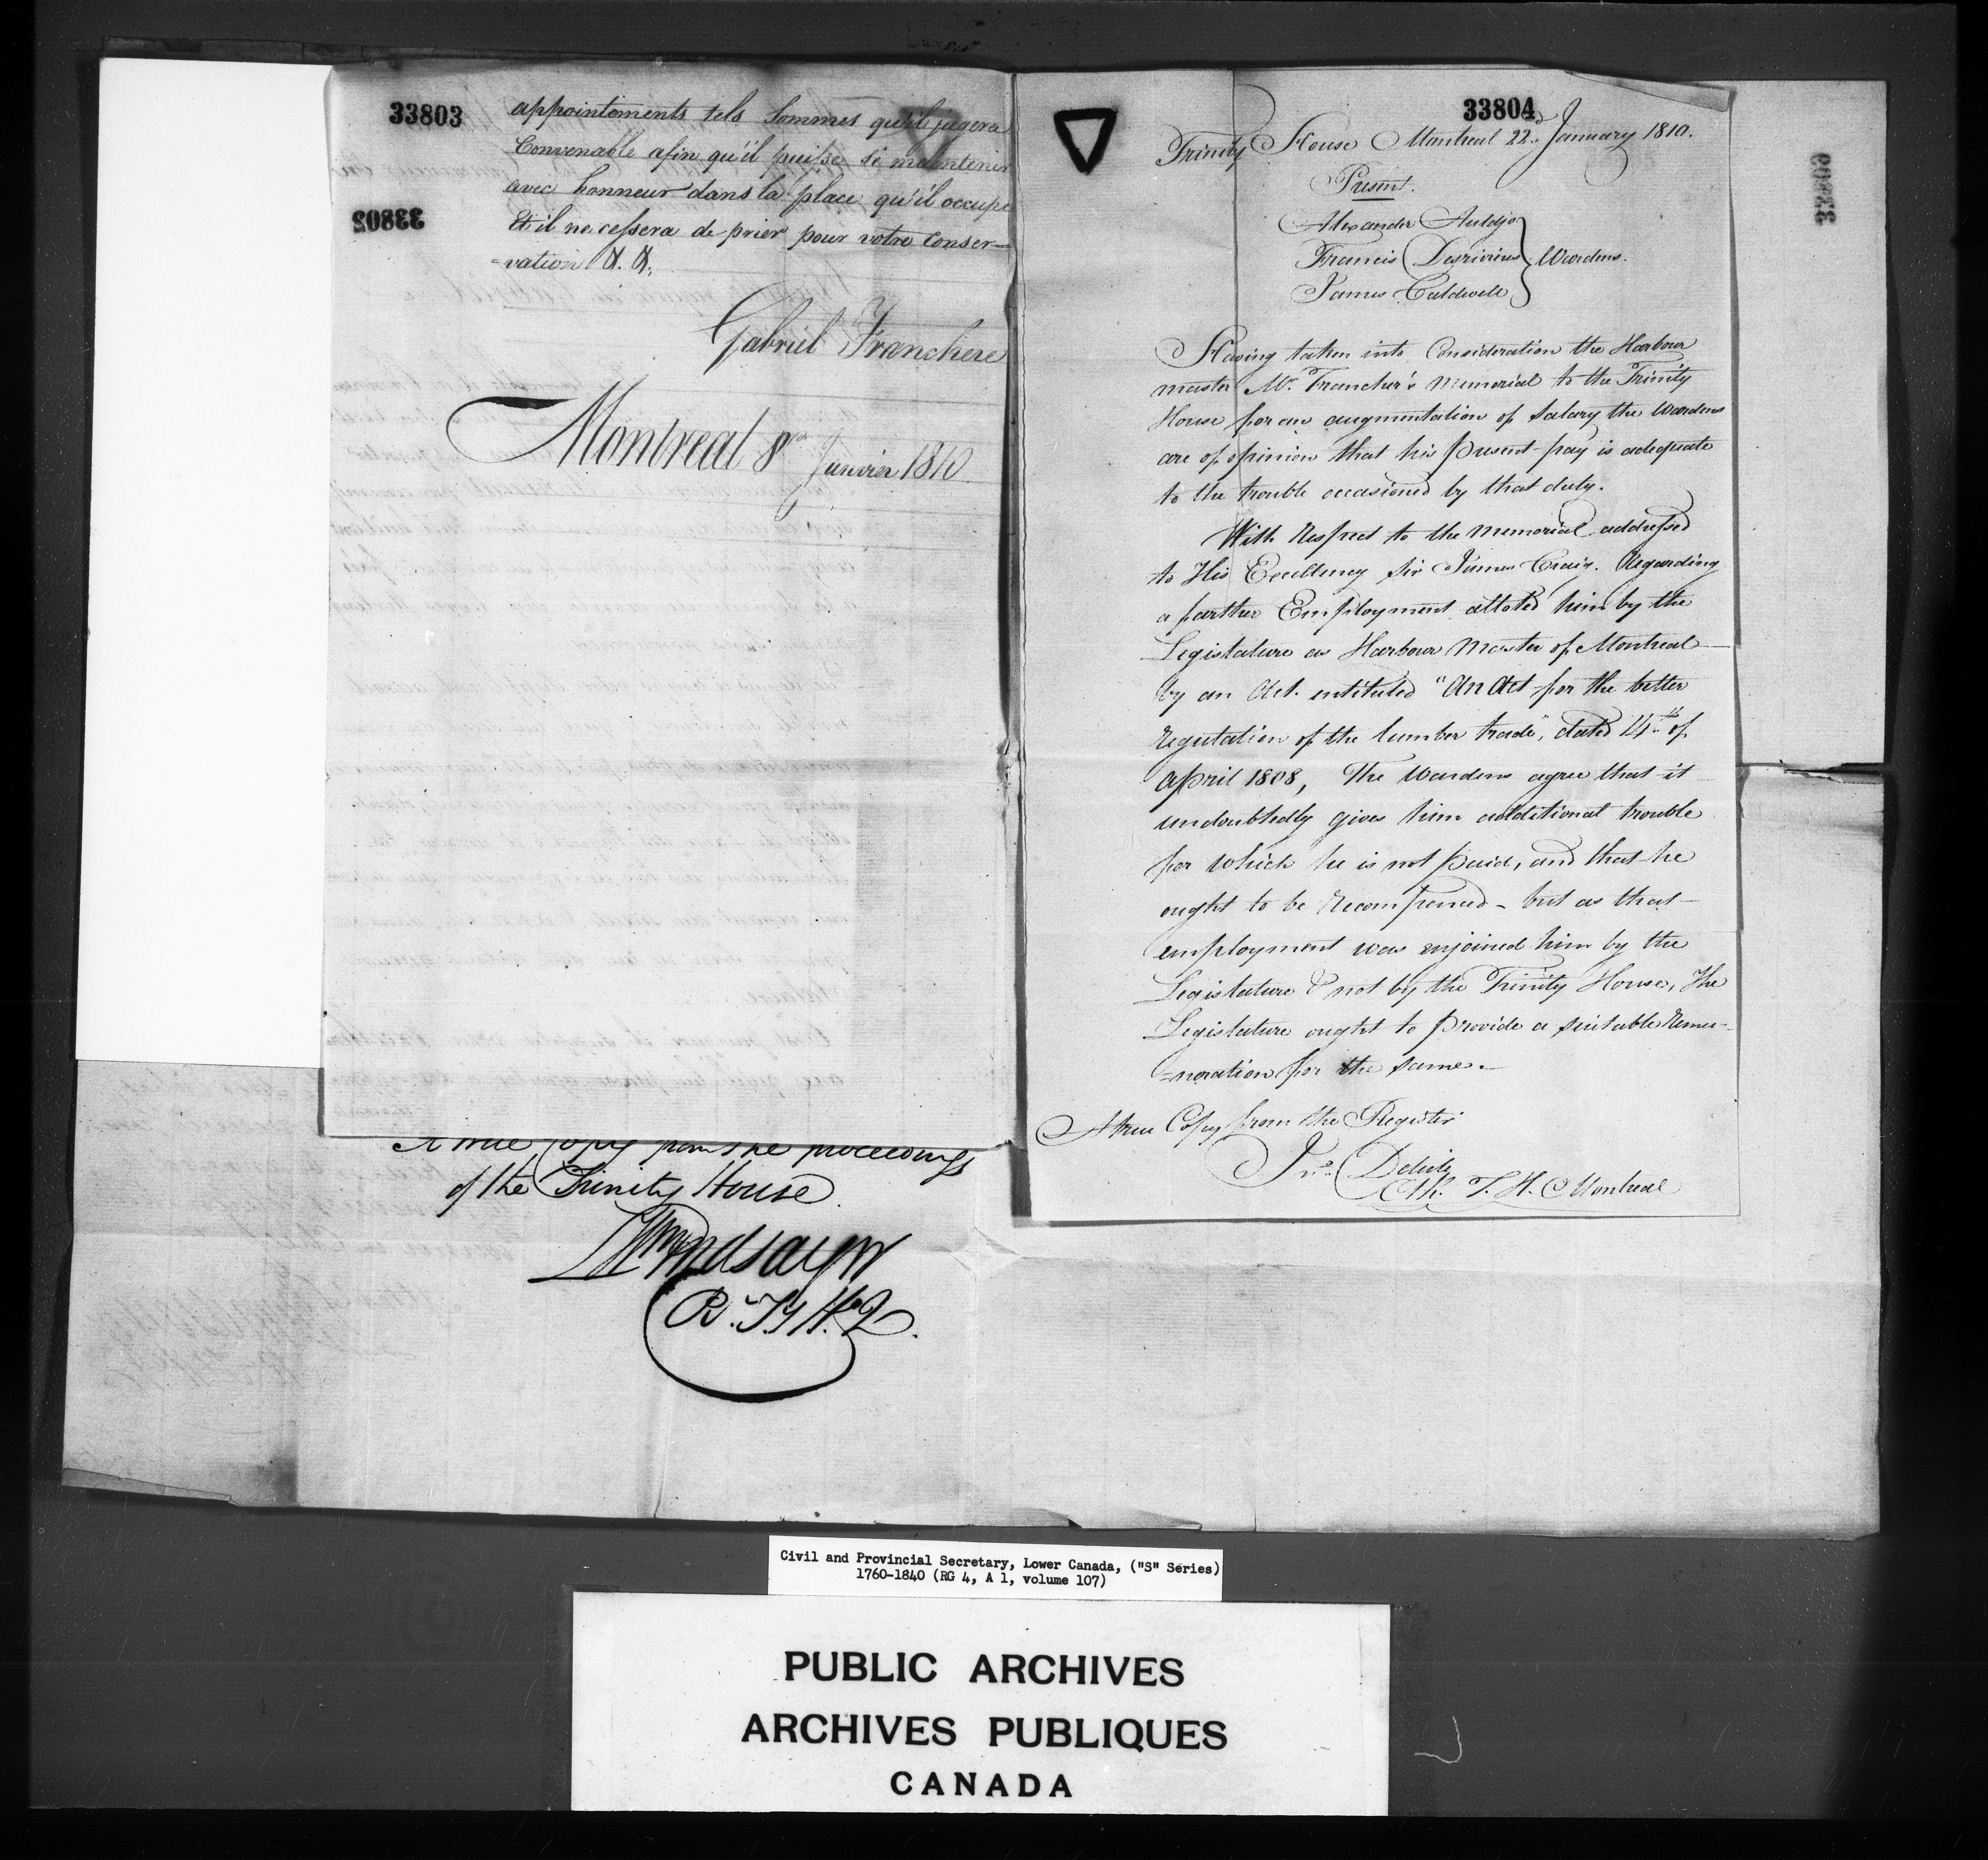 33803
appointements tels Sommes qu'il jugera
Convenable afin qu'il puisse se maintenir
avec honneur dans la place qu'il occupe
33802
Et il ne cessera de prier pour votre Conser=
=vation &. &.
Gabriel Franchere
Montreal 8 Janvier 1810
A true Copy from the proceedings
of the Trinity House
Wm Lindsay
33804
Trinity House Montreal 22d January 1810.
Present.
Alexander Auldjo
Francis Desrivieres } Wardens.
James Caldwell
33803
Having taken into Consideration the Harbour
master Mr. Francher's memorial to the Trinity
House for an augmentation of Salary the Wardens
are of opinion that his Present pay is adequate
to the trouble occasioned by that duty.
With Respect to the Memorial addressed
to His Excellency Sir James Craig. Regarding
a farther Employment alloted him by the
Legislature as Harbour Master of Montreal
by an Act. entituled "An Act for the better
Regulation of the lumber trade", dated 14th of
April 1808, The Wardens agree that it
undoubtedly gives him additional trouble
for which he is not Paid, and that he
ought to be Recompenced - but as that
employment was enjoined him by the
Legislature & not by the Trinity House, The
Legislature ought to Provide a suitable Remu=
=neration for the same.
A true Copy from the Register
Jno. Delisle
Clk. T. H. Montreal
Civil and Provincial Secretary, Lower Canada, ("S" Series)
1760-1840 (RG 4, A 1, volume 107)
PUBLIC ARCHIVES
ARCHIVES PUBLIQUES
CANADA